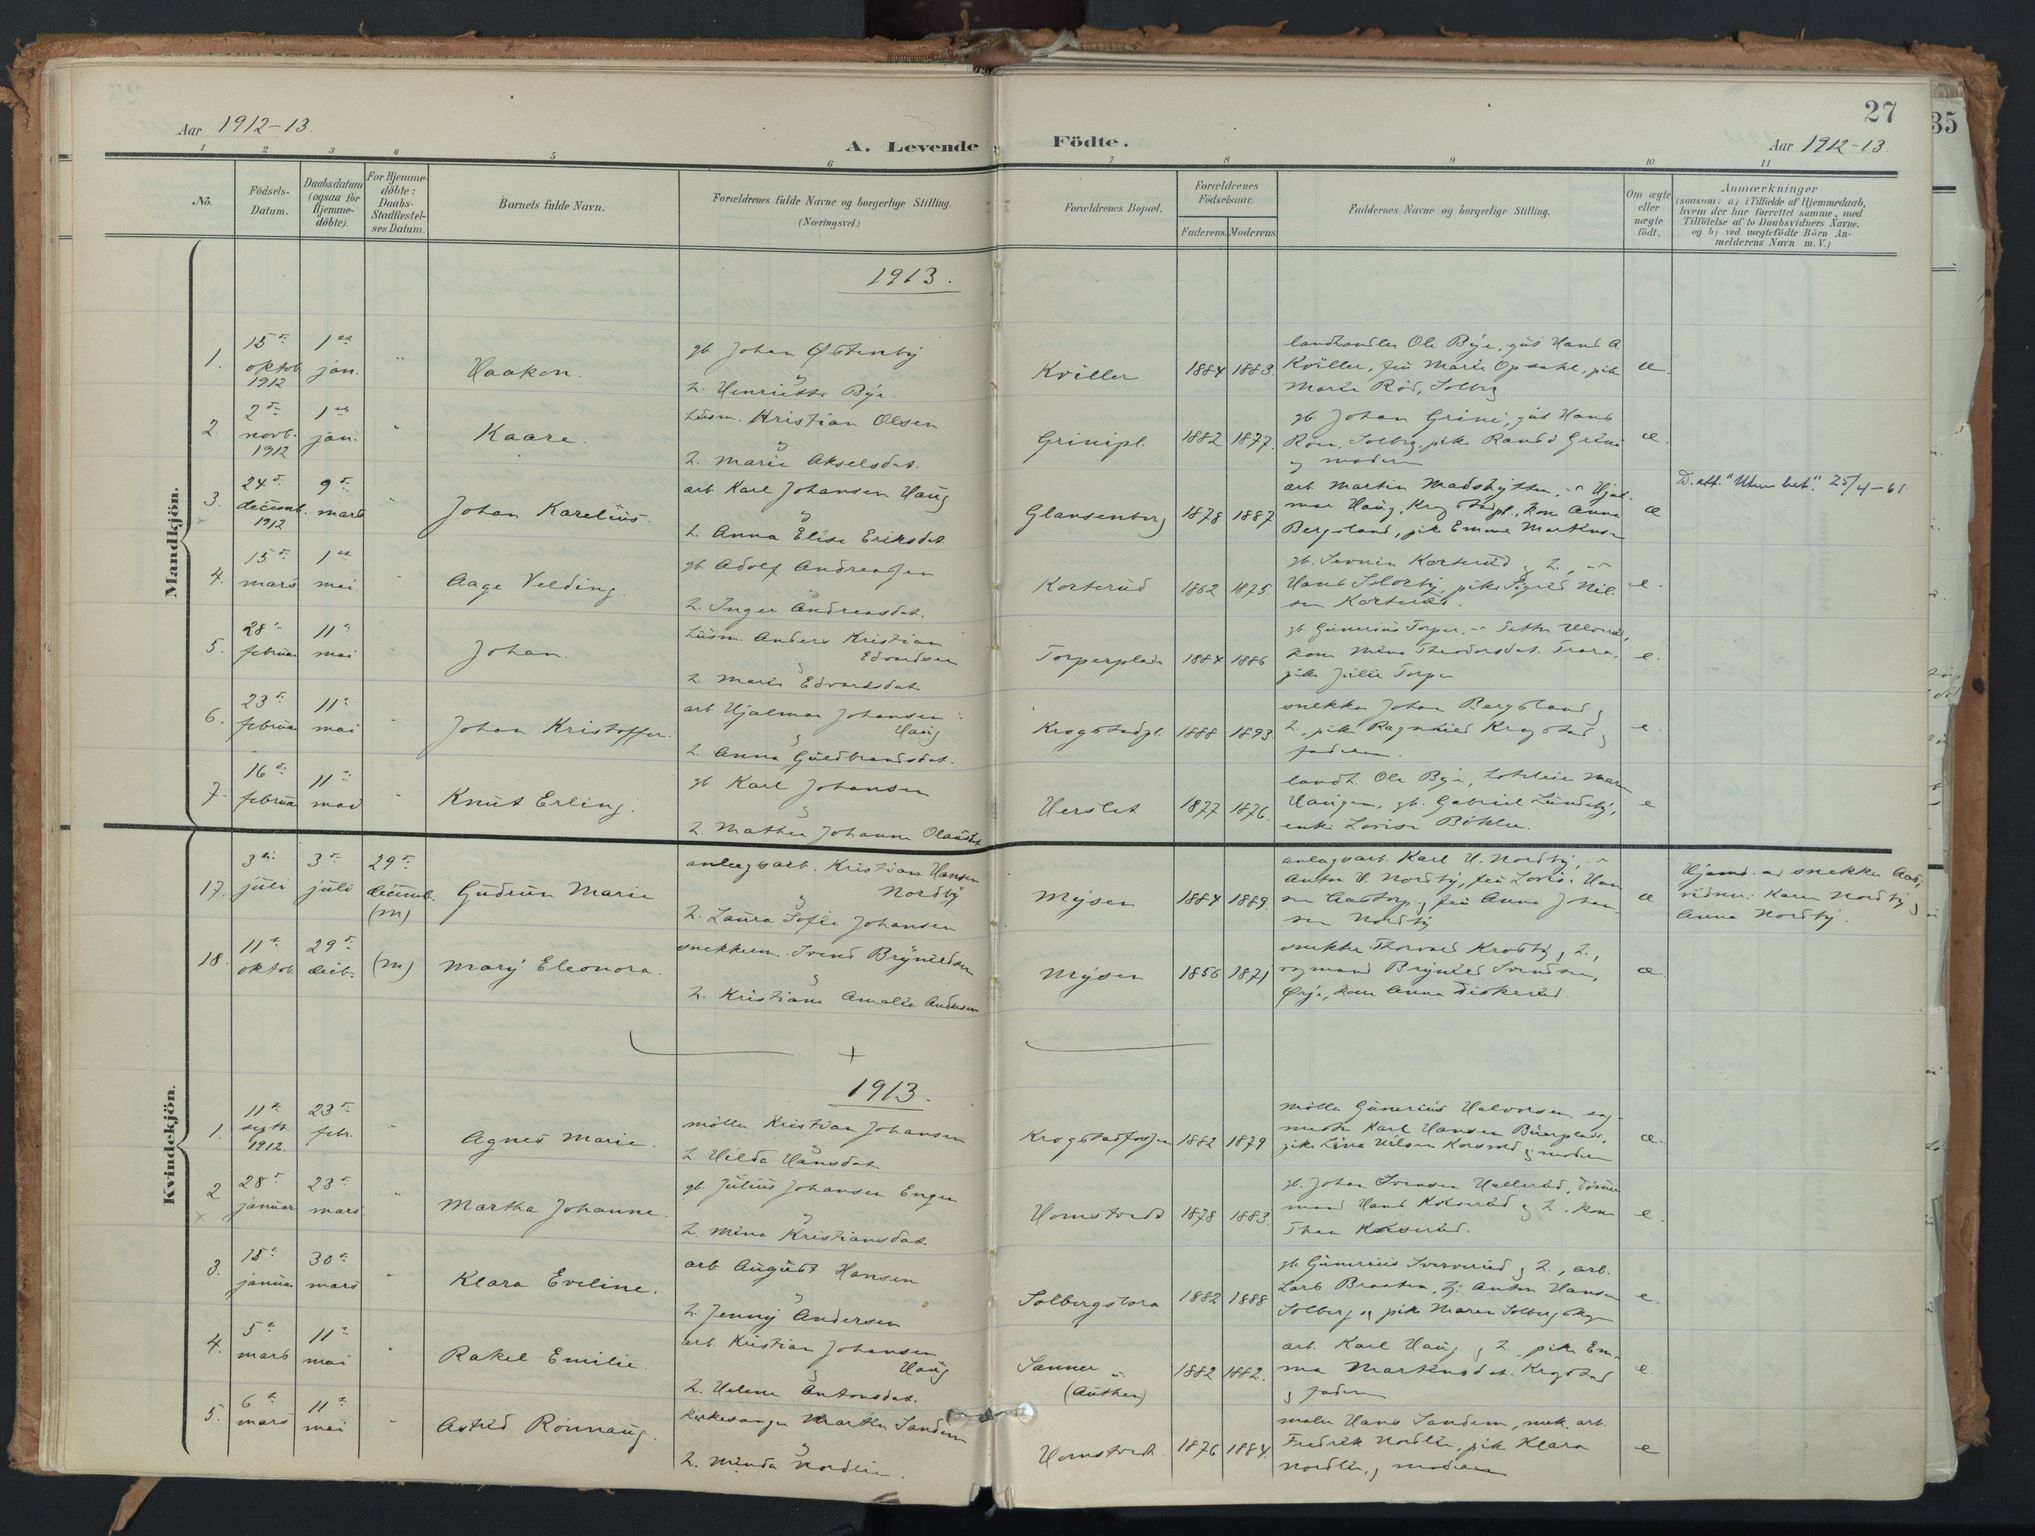 27
35
Aar 1912-13.
A. Levende Födte.
Aar 1912-13.
1 2 3 4 5 6 7 8 9 10 11
No.
Födsels-Datum.
Daabsdatum (ogsaa for Hjemme-döbte).
For Hjemme-döbte: Daabs-Stadfæstel-ses Datum.
Barnets fulde Navn.
Forældrenes fulde Navne og borgerlige Stilling. (Næringsvei.)
Forældrenes Bopæl.
Forældrenes Födselsaar.
Faderens. Moderens.
Faddernes Navne og borgerlige Stilling.
Om ægte eller uægte födt.
Anmærkninger
(saasom: a) i Tilfælde af Hjemmedaab,
hvem der har forrettet samme, med
Tilföielse af to Daabsvidners Navne.
og b) ved uægtefödte Börn An-
melderens Navn m. V.)
Mandkjön.
1913.
1. 15de oktob. 1912 1ste jan. " Haakon.
gb. Johan Østenby
og
h. Henriette Bye.
Kviller 1884 1883.
landhandler Ole Bye, gut Hans A.
Kviller, frü Marie Opsahl, pike
Marie Rød, Solbrg.
æ.
2. 2den novb. 1912 1ste jan. " Kaare.
husm. Kristian Olsen
og
h. Marie Akselsdat.
Grinipl. 1882 1877.
gb. Johan Grini, gut Hans
Røm, Solbrg, pike Randi Grini
og moderen
æ.
3. 24de decemb. 1912 9de mars Johan Karelius.
arb. Karl Johansen Haug
og
h. Anna Elise Eriksdat.
Glansenberg 1878 1887
arb. Martin Madshytten, -"- Hjal-
mar Haug, Krogstadpl., kone Anna
Bergsland, pik Emma Markusen
æ
D. att. "Uten bet." 25/4-61
4. 15de mars 1ste mai. " Aage Velding.
gb. Adolf Andreassen
og
h. Inger Andreasdat.
Korterud 1862 1875.
gb. Severin Korterud og h., -"-
Hans Sloreby, pike Sigrid Nil-
sen Korterud.
e.
5. 28de februar 11te mai Johan.
husm. Anders Kristian
Edvardsen
og
h. Marie Edvardsdat.
Torperplads 1884 1886
gb. Gunerius Torper, -"- Petter Ulvrud,
kone Mina Theodorsdat. Trara,
pike Julie Torper
e.
6. 23de februar 11te mai " Johan Kristoffer.
arb. Hjalmar Johansen
Haug
og
h. Anna Guldbrandsdat.
Krogstadpl. 1888 1893
snekker Johan Bergsland og
h., pike Ragnhild Krogstad og
faderen.
e.
7. 16de februar 11te mai " Knut Erling.
gb. Karl Johansen
og
h. Mathea Johanne Olausdat.
Herslet 1877 1876.
landh. Ole Bye, hoteleier Maren
Haugen, gb. Gabriel Lundeby,
enke Lovise Böhler.
e
Kvindekjön.
17. 3die juli 3die juli 29de decemb. (m) Gudrun Marie
anlægsarb. Kristian Hansen
Nordby
og
h. Laura Sofie Johansen
Mysen 1884 1889.
anlægsarb. Karl H. Nordby, -"-
Anton H. Nordby, frü Lovise Han-
sen Aastorp og frü Anna Johan-
sen Nordby
æ
Hjemd. av snekker Aaby,
vidner: Karen Nordby og
Anna Nordby.
18. 11te oktob. 29de decb. (m) Mary Eleonora.
snekkerm. Svend Brynildsen
og
h. Kristiane Amalie Andersen
Mysen 1856 1871
snekker Thorvald Krosby og h.,
Brynild Svendsen,
Ørje, kone Anna Diskerud.
æ.
1913.
1. 11te septb. 1912. 23de febr. " Agnes Marie.
møller Kristian Johansen
og
h. Hilda Hansdat.
Krogstadfossen 1882 1879
møller Gunerius Halvorsen, sag-
mester Karl Hansen
pike Lina Nilsen Korsrød og moderen
æ.
2 28de januar 23de mars " Martha Johanne.
gb. Julius Johansen Enger
og
h. Mina Kristiansdat.
Homstvedt 1878 1883.
gb. Johan Svensen Hallerud, tømmer-
mand Hans Kolsrud og h., kone
Thea Kolsrud.
e.
3. 15de januar 30de mars " Klara Eveline.
arb. August Hansen
og
h. Jenny Andersen
Solbergstora 1882 1888
gb. Gunerius Sververud og h., arb.
Lars Braaten, Anton Hansen
Solberg og pike Maren Solbergskogen
e.
4. 5te mars 11te mai " Rakel Emilie.
arb. Kristian Johansen
Haug
og
h. Helene Antonsdat.
Sanner
(Authen)
1882 1882.
arb. Karl Haug og h., pike Em-
ma Martinsdat. Krogstad
og faderen
e.
5. 6te mars 11te mai " Astrid Rønnaug.
kirkesanger Martin Sandem
og
h. Minda Nordlie.
Homstvedt. 1876 1884.
maler Hans Sandem, mek. arb.
Fredrik Nordlie, pike Klara
Nordlie, og moderen
e